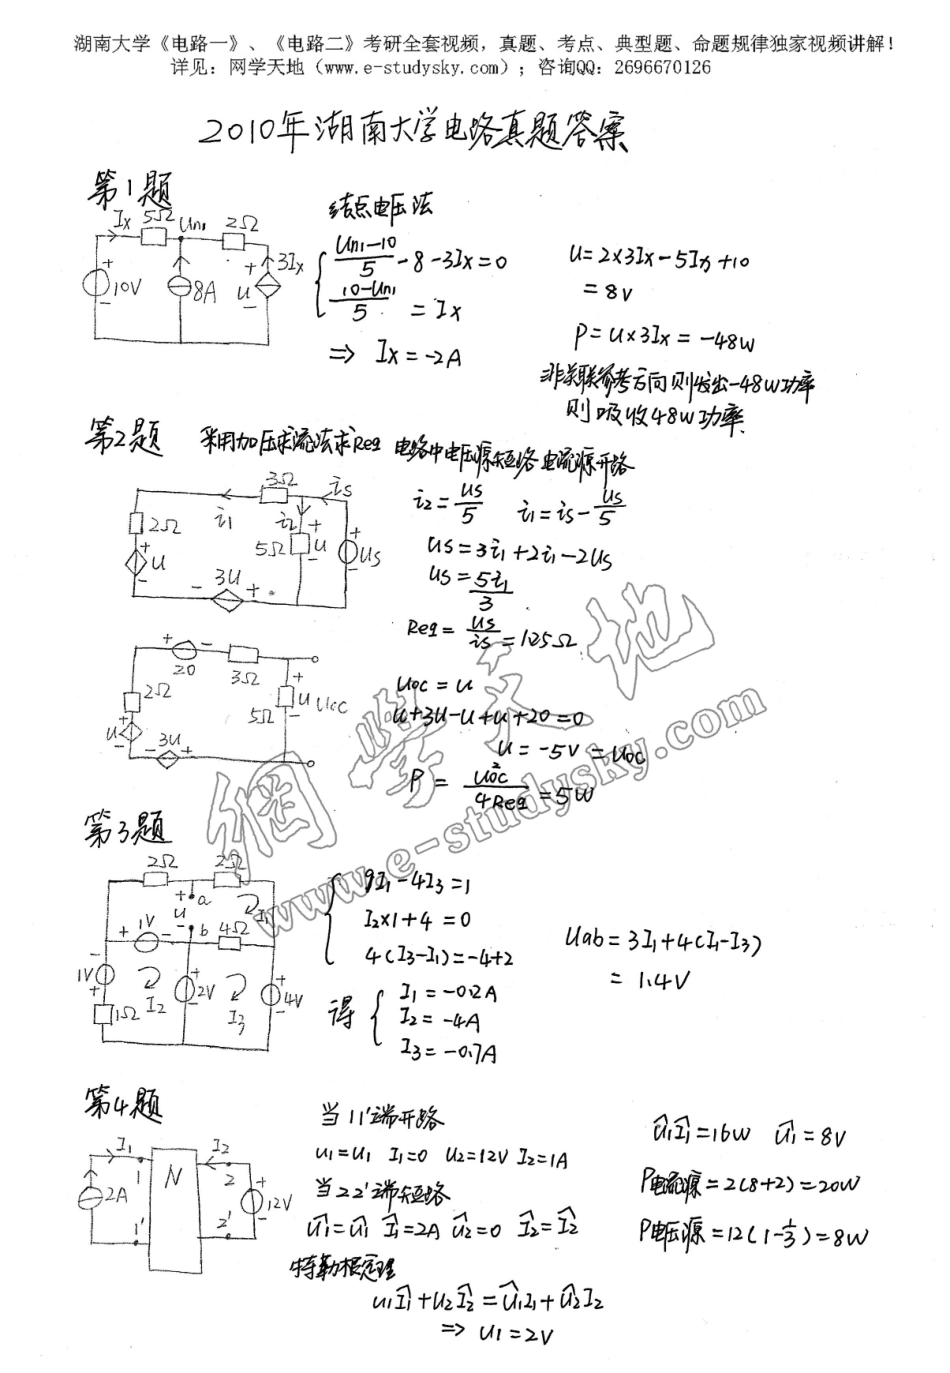 湖南大学《电路一》、《电路二》考研全套视频，真题、考点、典型题、命题规律独家视频讲解！
详见：网学天地（www.e-studysky.com）；咨询QQ：2696670126
2010年湖南大学电路真题答案
第1题
Ix 5Ω Un1 2Ω
10V 8A u 3Ix
结点电压法
(Un1-10)/5 -8-3Ix=0
(10-Un1)/5 = Ix
⇒ Ix=-2A
u=2×3Ix-5Ix+10
=8V
P=u×3Ix=-48W
非关联参考方向则发出-48W功率
则吸收48W功率.
第2题 采用加压求流法求Req 电路中电压源短路 电流源开路
3Ω is
2Ω i1 i2 5Ω u us
u 3u
i2=us/5 i1=is-us/5
us=3i1+2i1-2us
us=5i1/3
Req=us/is=1.25Ω
20 3Ω
2Ω 5Ω u uoc
u 3u
uoc=u
u+3u-u+u+20=0
u=-5V=uoc
P=uoc²/4Req=5W
網學天地
www.e-studysky.com
第3题
2Ω 2Ω
a u I1
1V b 4Ω
1V I2 2V I3 4V
1Ω
9I1-4I3=1
I2×1+4=0
4(I3-I1)=-4+2
得
I1=-0.2A
I2=-4A
I3=-0.7A
Uab=3I1+4(I1-I3)
= 1.4V
第4题
I1 1 N I2 2
2A 12V
1' 2'
当11'端开路
u1=u1 I1=0 u2=12V I2=1A
当22'端短路
û1=û1 Î1=2A û2=0 Î2=Î2
特勒根定理
u1Î1+u2Î2=û1I1+û2I2
⇒ u1=2V
û1Î1=16W û1=8V
P电流源=2(8+2)=20W
P电压源=12(1-1/3)=8W